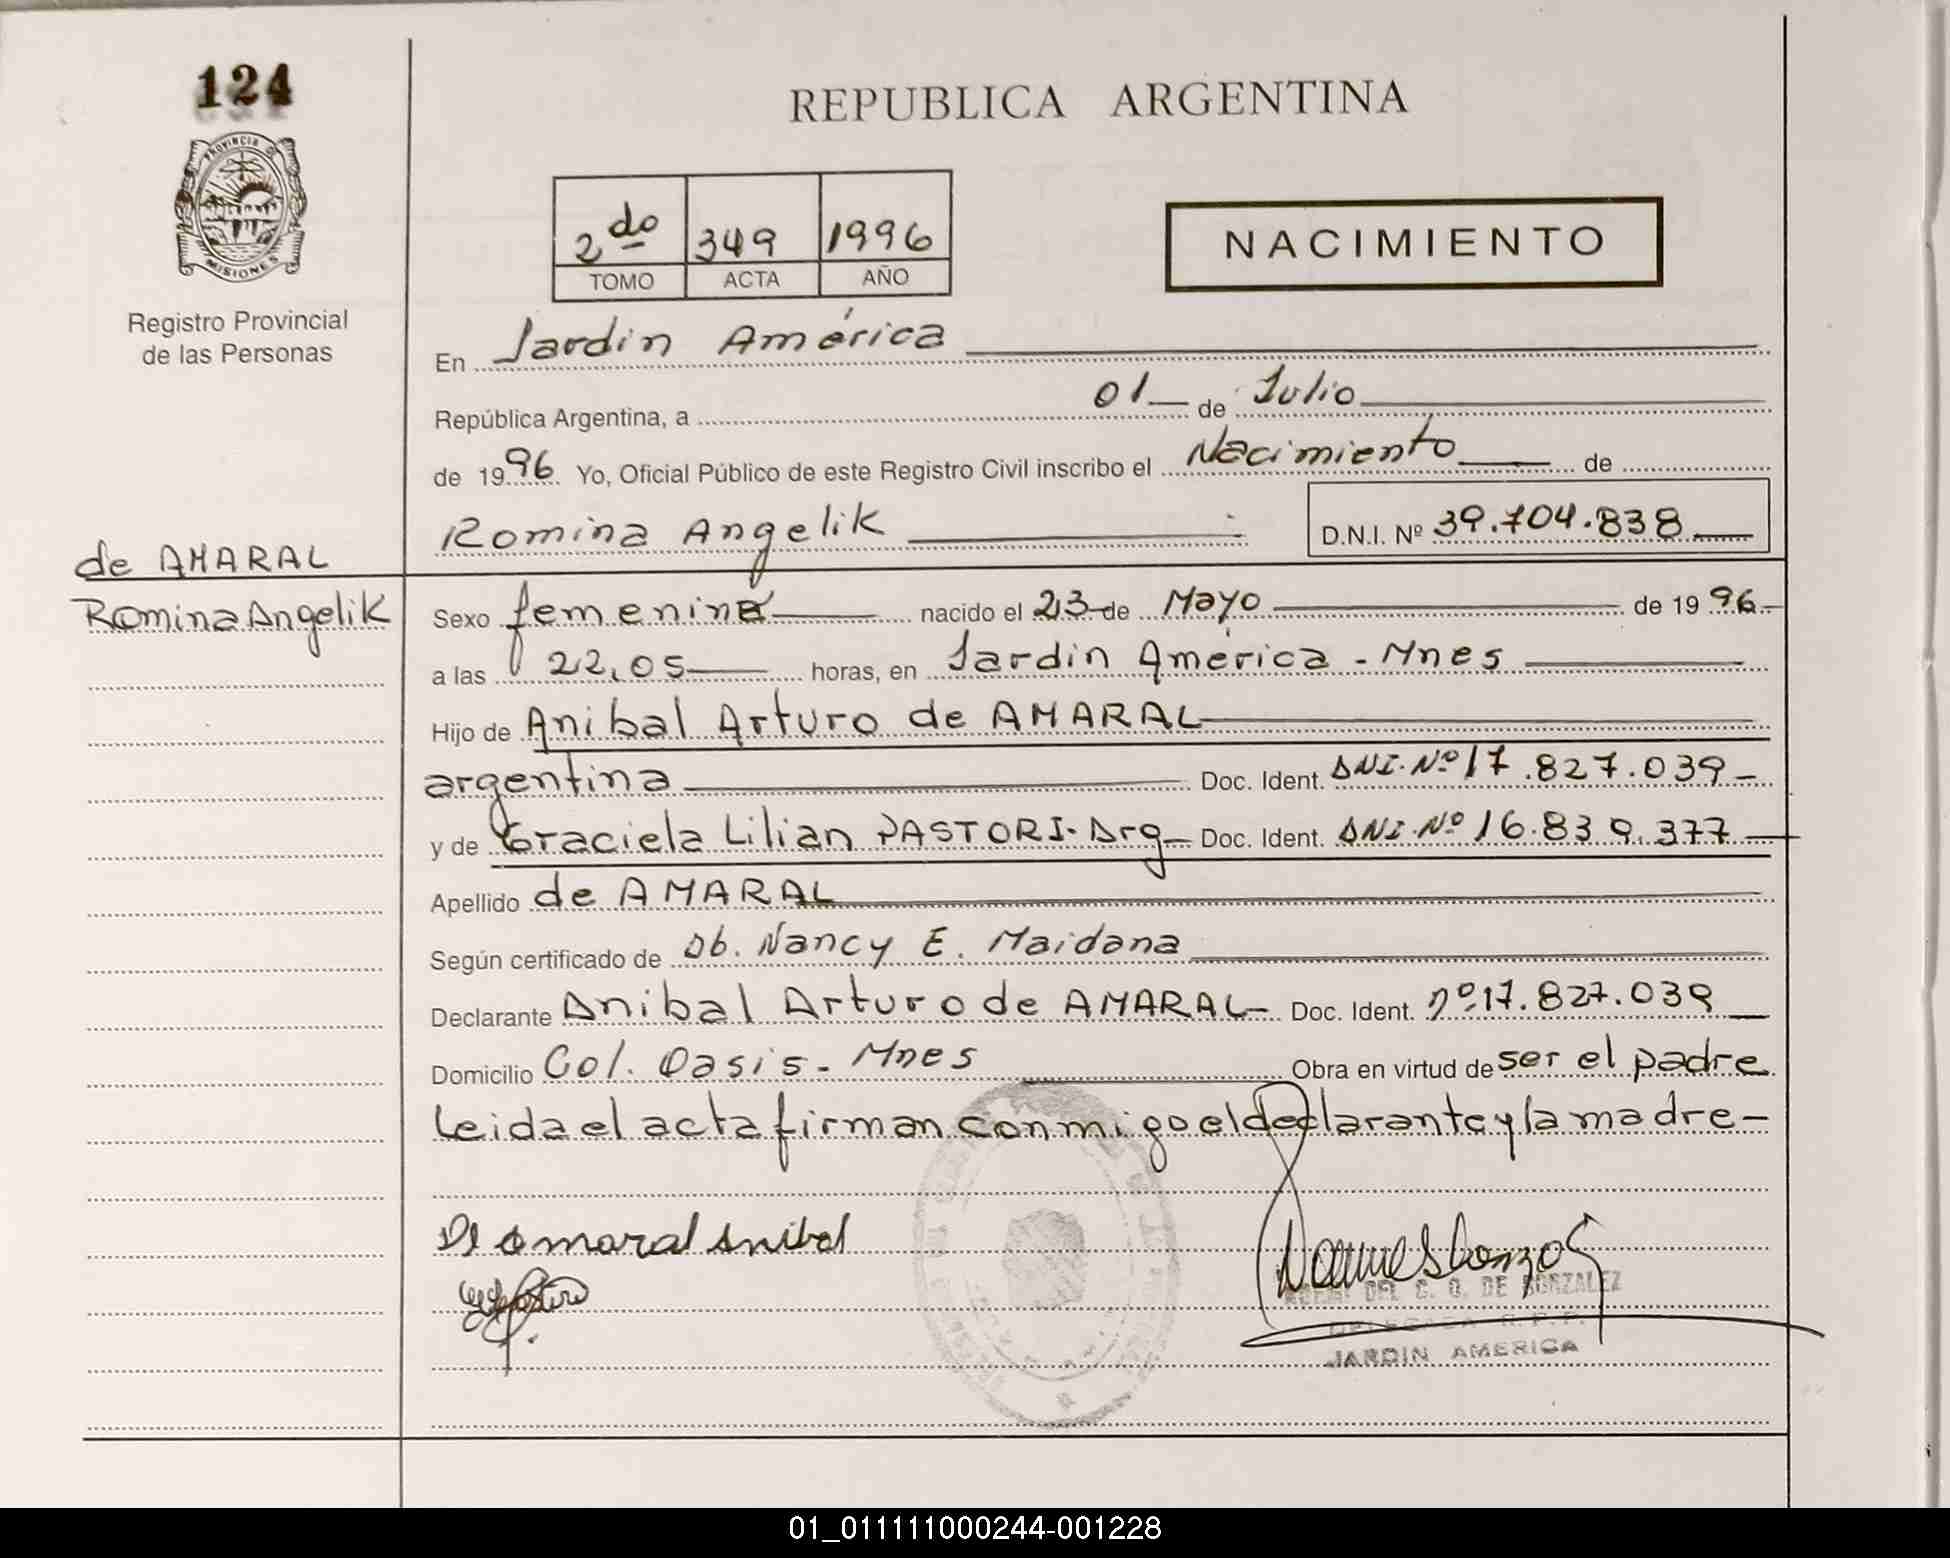 124
PROVINCIA DE
MISIONES
Registro Provincial
de las Personas
REPUBLICA ARGENTINA
2do 349 1996
TOMO ACTA AÑO
NACIMIENTO
En Jardín América
República Argentina, a 01 de Julio
de 1996 Yo, Oficial Público de este Registro Civil inscribo el Nacimiento de
Romina Angelik D.N.I. Nº 39.704.838
de AMARAL
Romina Angelik
Sexo femenina nacido el 23 de Mayo de 1996
a las 22,05 horas, en Jardín América - Mnes
Hijo de Anibal Arturo de AMARAL
argentina Doc. Ident. DNI. Nº 17.827.039
y de Graciela Lilian PASTORI. Arg Doc. Ident. DNI. Nº 16.839.377
Apellido de AMARAL
Según certificado de Ob. Nancy E. Maidana
Declarante Anibal Arturo de AMARAL Doc. Ident. nº 17.827.039
Domicilio Col. Oasis - Mnes Obra en virtud de ser el padre
Leida el acta firman conmigo el declarante y la madre
De Amaral Anibal
DEL C. G. DE GONZALEZ
DELEGADA R.P.P.
JARDIN AMERICA
01_011111000244-001228